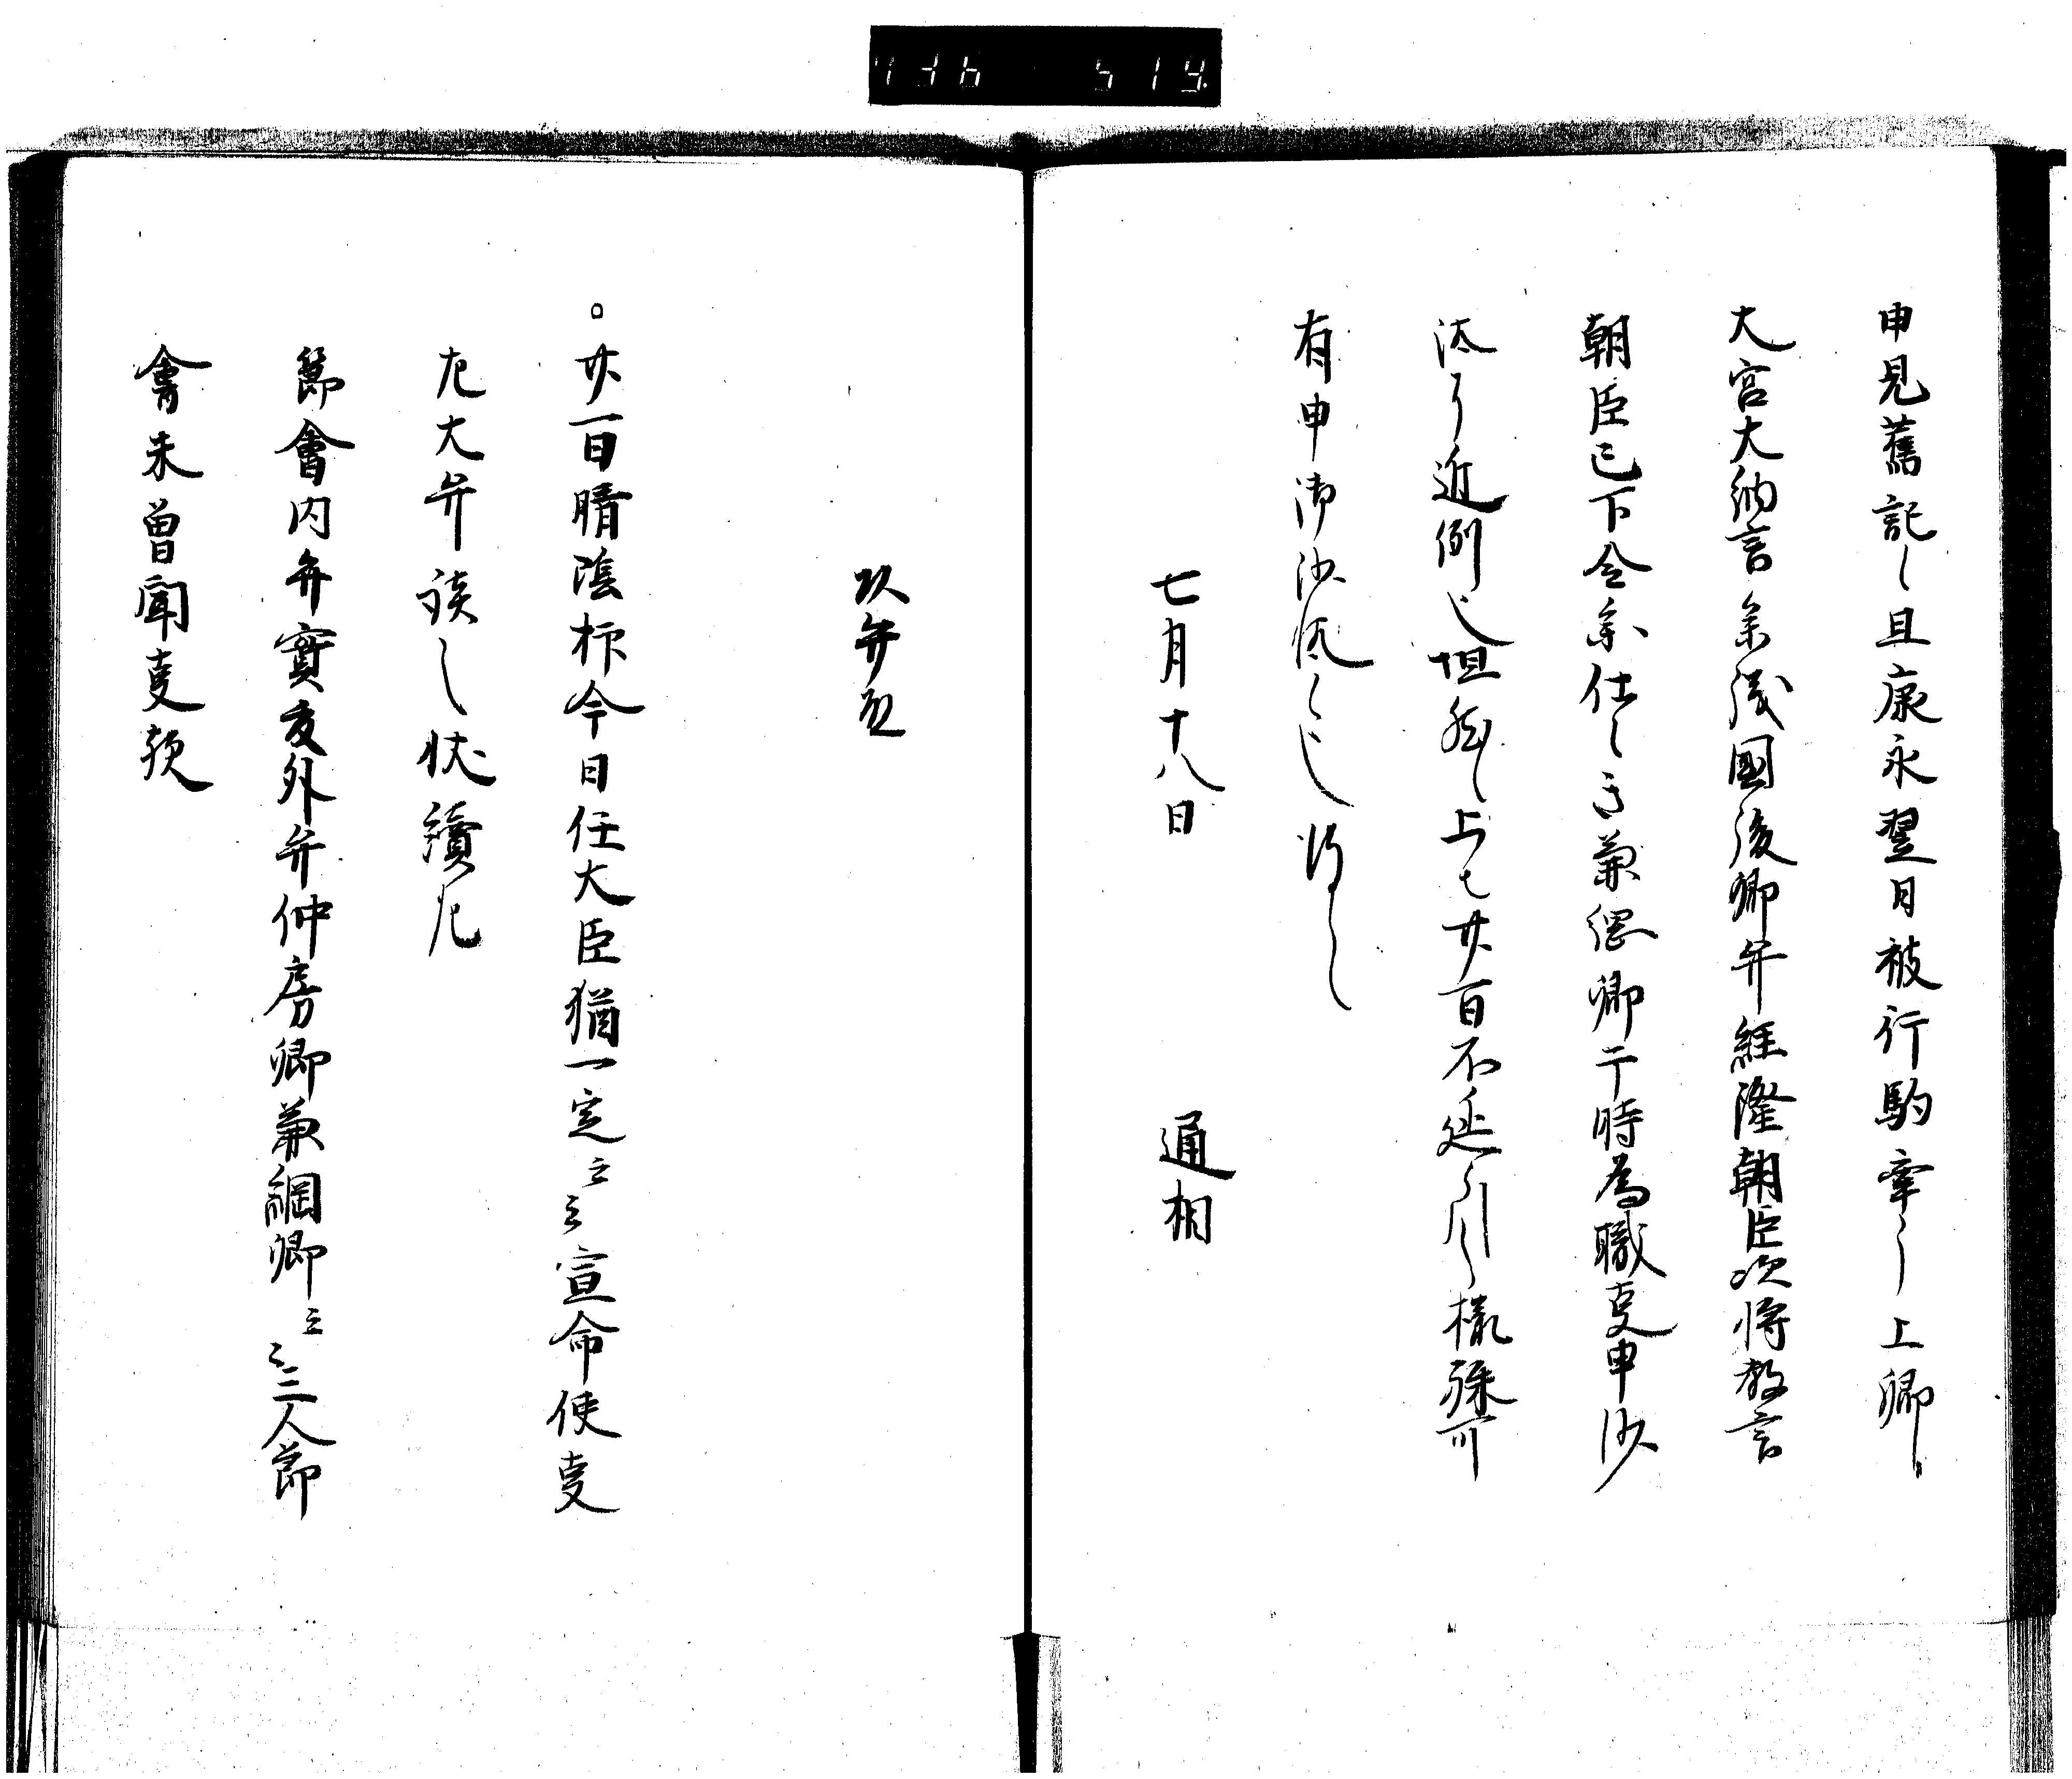 申見舊記之且康永翌日被行駒牽之上卿
大宮大納言参議國俊卿弁経隆朝臣次将教言
朝臣已下令参仕之き兼綱卿于時為職事申沙
汰了近例也坦然之上七廿一日不延引之様殊可
有申御沙汰候也恐々
七月十八日 通相
頭弁殿
廿一日晴陰祚今日任大臣猶一定云々宣命使事
左大弁談之状續左
節會内弁實夏外弁仲房卿兼綱卿云々三人節
會未曽聞事歟